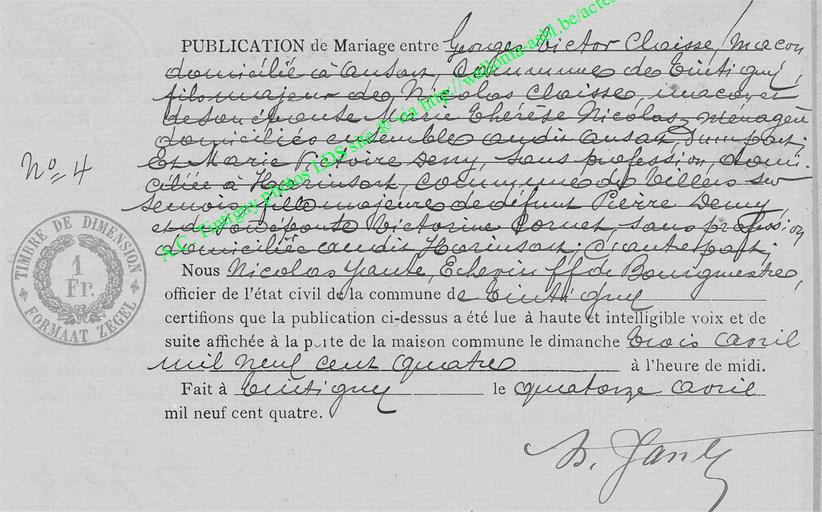 PUBLICATION de Mariage entre Georges Victor Claisse, maçon
domicilié à Ansart, commune de Tintigny,
fils majeur de Nicolas Claisse, maçon et
de son épouse Marie Thérèse Nicolas, ménagère
domiciliés ensemble audit Ansart, d'une part;
Et Marie Victoire Deny, sans profession, domi-
ciliée à Harinsart, commune de Villers-sur
Semois, fille majeure de défunt Pierre Denny
et de son épouse Victorine Cornet, sans profession
domiciliée audit Harinsart; d'autre part;
Nº 4
TIMBRE DE DIMENSION
1
Fr.
FORMAAT ZEGEL
Nous Nicolas, Echevin ff de Bourgmestre,
officier de l'état civil de la commune de Tintigny
certifions que la publication ci-dessus a été lue à haute et intelligible voix et de
suite affichée à la porte de la maison commune le dimanche trois avril
mil neuf cent quatre à l'heure de midi.
Fait à Tintigny le quatorze avril
mil neuf cent quatre.
A.C. Tintigny Photos LDS site & via http://wallonia-asbl.be/actes